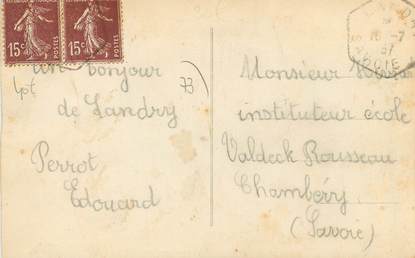 15c POSTES 15c POSTES
Un bonjour
de Landry
Perrot
Edouard
4pt
73
Monsieur
instituteur école
Valdeck Rousseau
Chambéry
(Savoie)
18 -7
31
SAVOIE